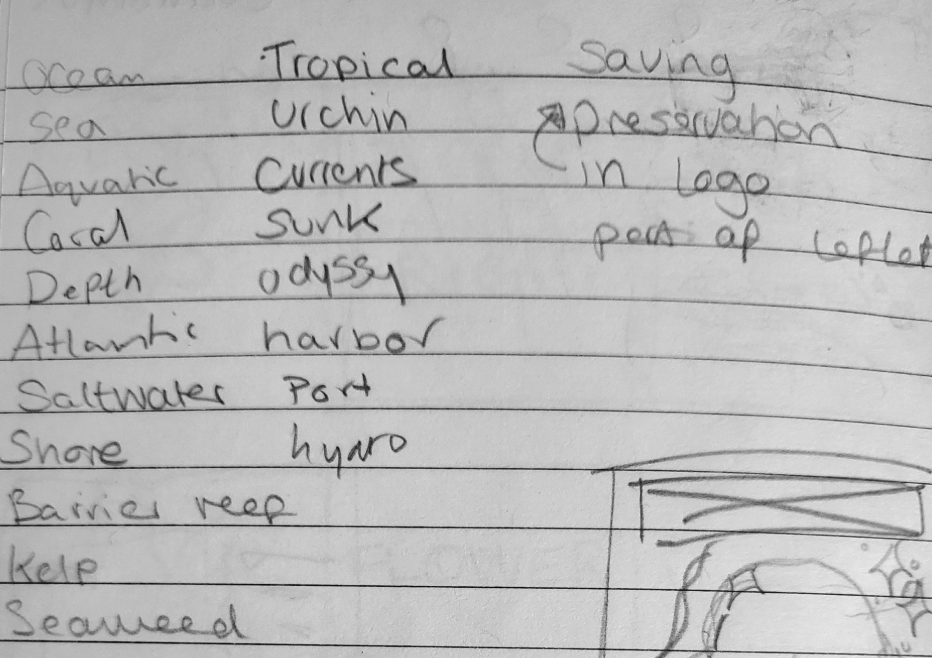 Ocean
Sea
Aquatic
Coral
Depth
Atlantic
Saltwater
Shore
Barrier reef
Kelp
Seaweed
Tropical
Urchin
Currents
Sunk
odyssy
harbor
Port
hydro
Saving
preservation
in logo
part of